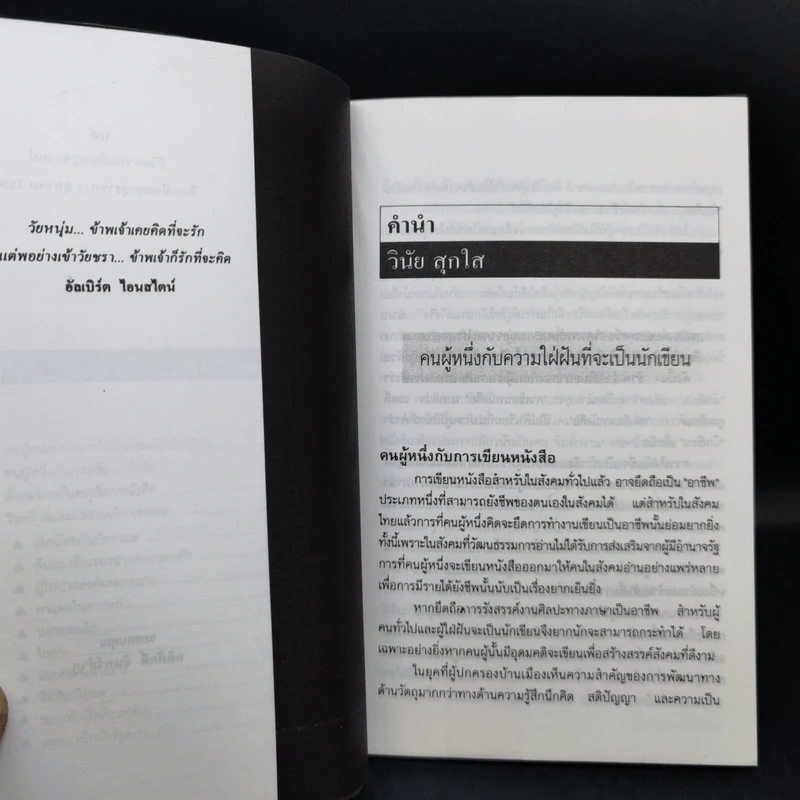 วัยหนุ่ม... ข้าพเจ้าเคยคิดที่จะรัก
แต่พอย่างเข้าวัยชรา... ข้าพเจ้าก็รักที่จะคิด
อัลเบิร์ต ไอนสไตน์
คำนำ
วินัย สุกใส
คนผู้หนึ่งกับความใฝ่ฝันที่จะเป็นนักเขียน
คนผู้หนึ่งกับการเขียนหนังสือ
การเขียนหนังสือสำหรับในสังคมทั่วไปแล้ว อาจยึดถือเป็น "อาชีพ"
ประเภทหนึ่งที่สามารถยังชีพของตนเองในสังคมได้ แต่สำหรับในสังคม
ไทยแล้วการที่คนผู้หนึ่งคิดจะยึดการทำงานเขียนเป็นอาชีพนั้นย่อมยากยิ่ง
ทั้งนี้เพราะในสังคมที่วัฒนธรรมการอ่านไม่ได้รับการส่งเสริมจากผู้มีอำนาจรัฐ
การที่คนผู้หนึ่งจะเขียนหนังสือออกมาให้คนในสังคมอ่านอย่างแพร่หลาย
เพื่อการมีรายได้ยังชีพนั้นนับเป็นเรื่องยากเย็นยิ่ง
หากยึดถือการรังสรรค์งานศิลปะทางภาษาเป็นอาชีพ สำหรับผู้
คนทั่วไปและผู้ใฝ่ฝันจะเป็นนักเขียนจึงยากนักจะสามารถกระทำได้ โดย
เฉพาะอย่างยิ่งหากคนผู้นั้นมีอุดมคติจะเขียนเพื่อสร้างสรรค์สังคมที่ดีงาม
ในยุคที่ผู้ปกครองบ้านเมืองเห็นความสำคัญของการพัฒนาทาง
ด้านวัตถุมากกว่าทางด้านความรู้สึกนึกคิด สติปัญญา และความเป็น